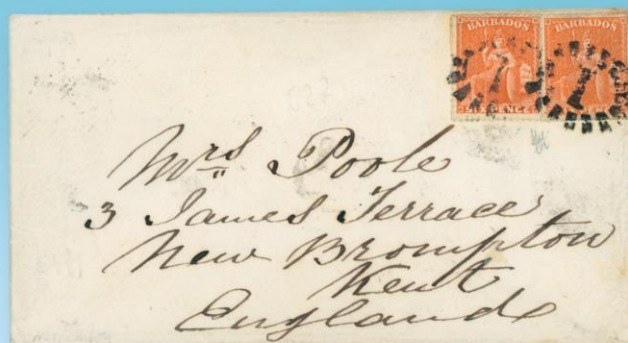 BARBADOS BARBADOS
SIX PENCE
1 1
Mrs Poole
3 James Terrace
New Brompton
Kent
England